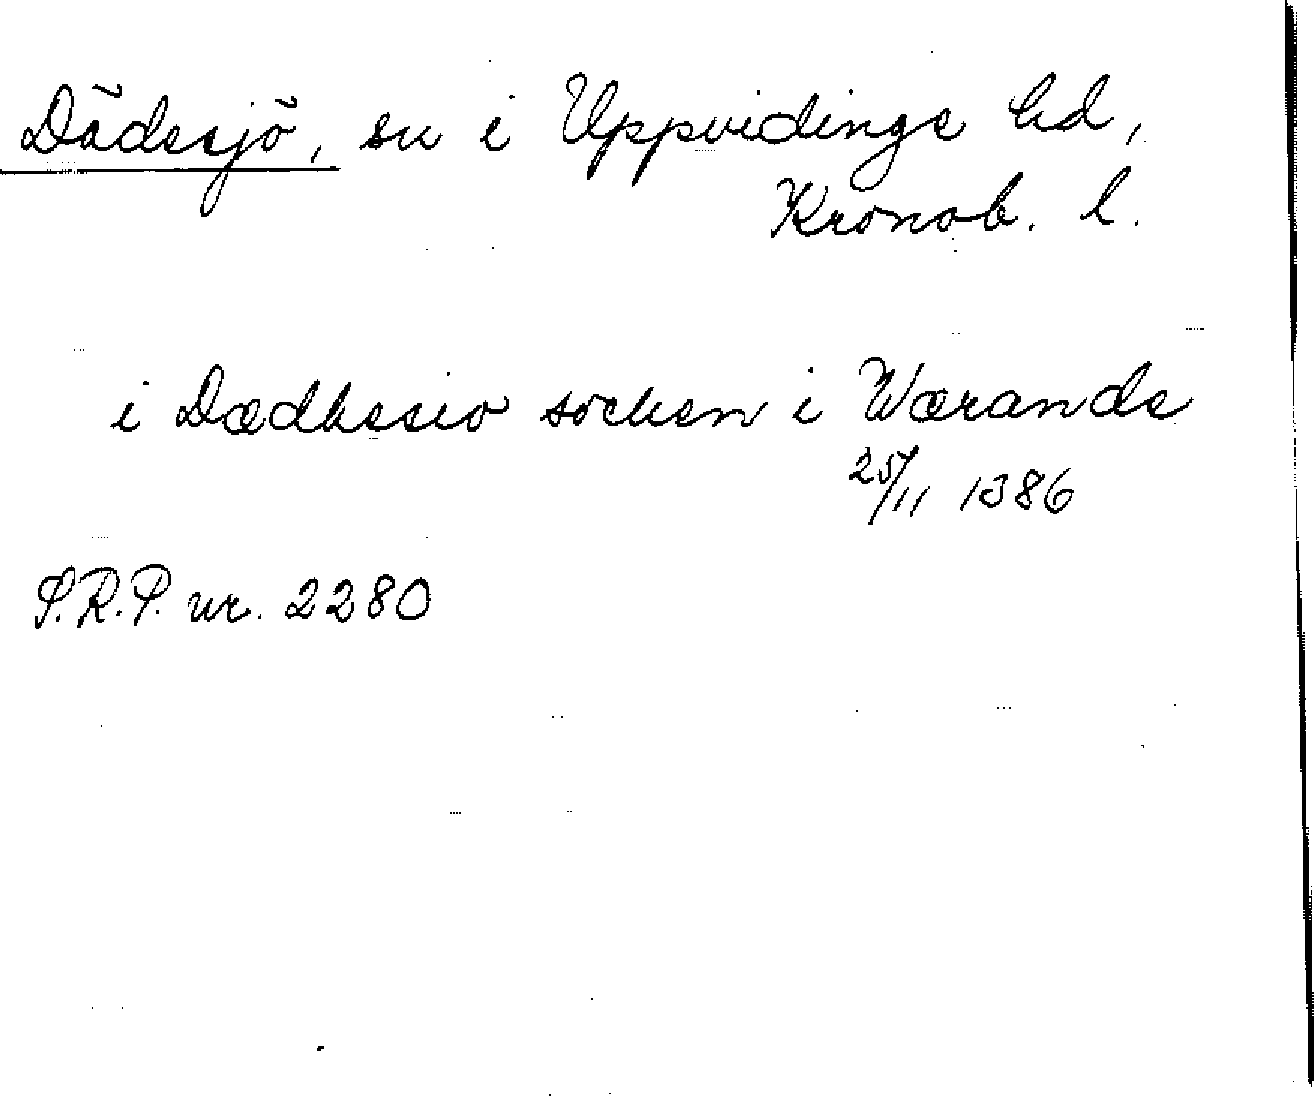 Dädesjö, sn i Uppvidinge hd,
Kronob. l.
i Dædhesio socken i Wærande
25/11 1386
S.R.P. nr. 2280